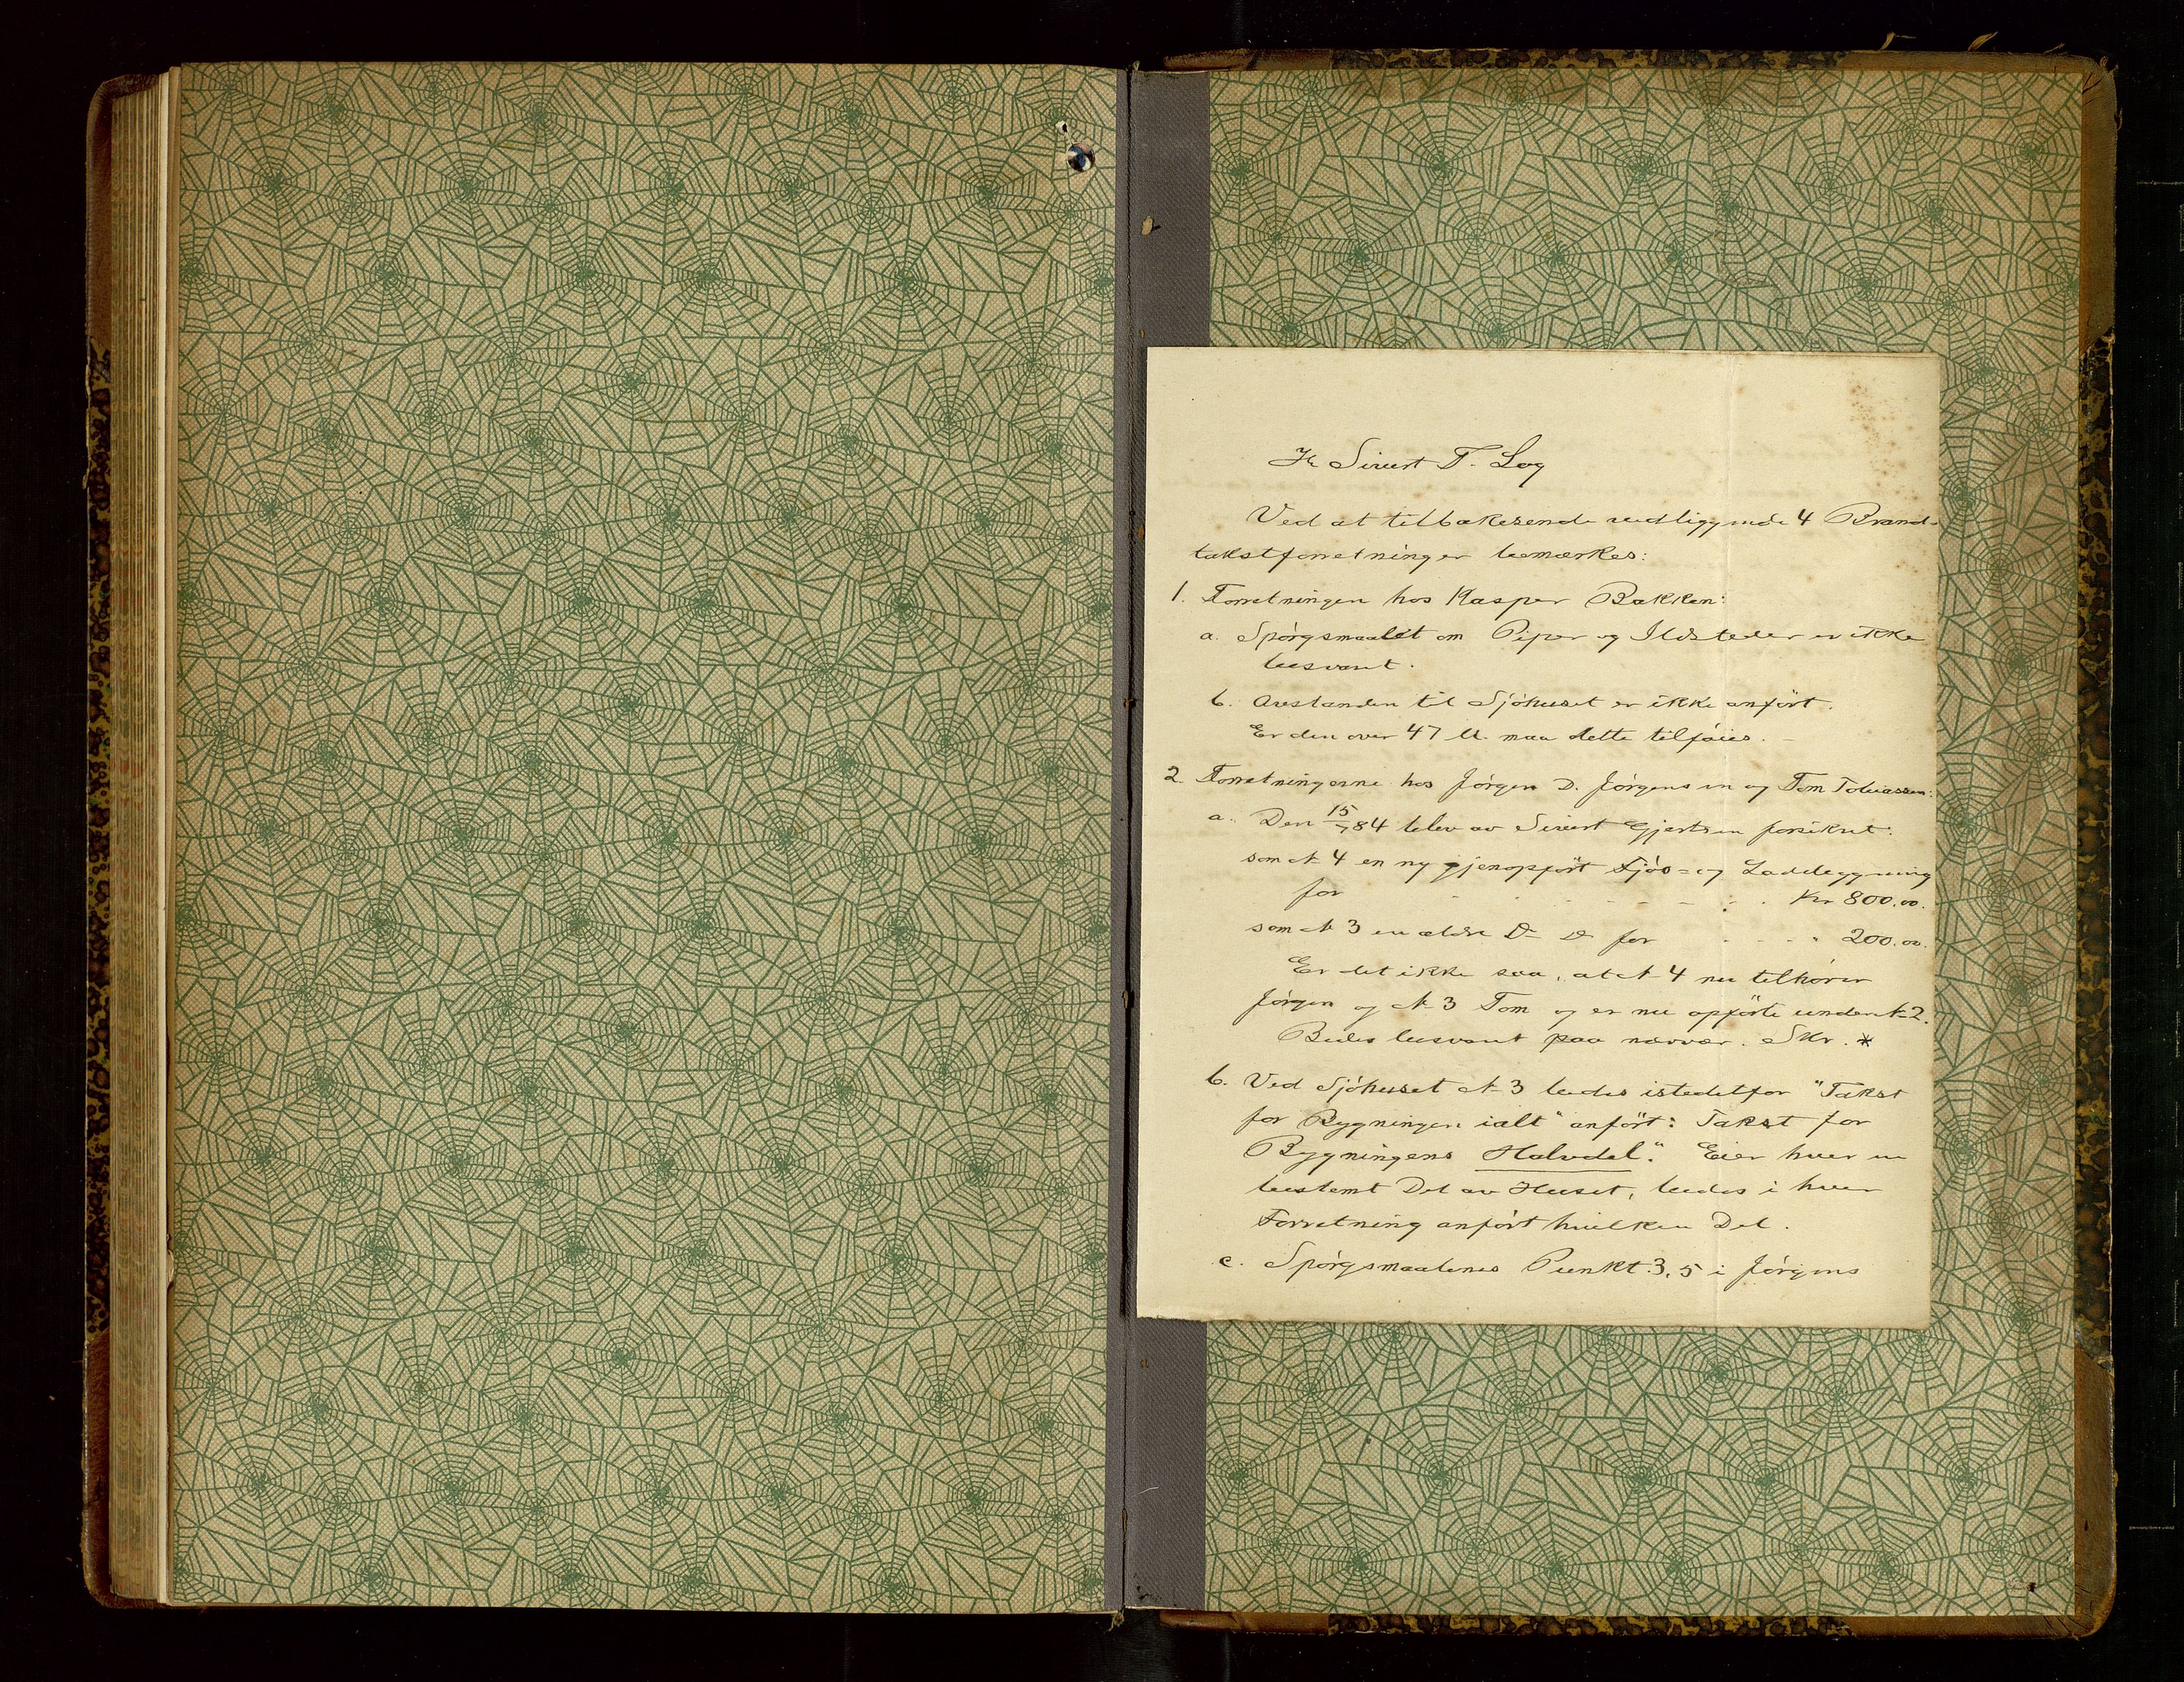 Hr Sivert T. Log
Ved at tilbakesende vedliggende 4 Brand-
takstforretninger bemærkes:
1. Forretningen hos Kasper Bakken:
a. Spørgsmaalet om Piper og Ildsteder er ikke
besvart.
b. Avstanden til Sjøhuset er ikke anført.
Er den over 47 M. maa dette tilføies. –
2 Forretningerne hos Jørgen D. Jørgensen og Tom Tobiassen:
a. Den 15/7 84 blev av Sivert Gjertsen forsikret:
som № 4 en ny gjenopført Sjøs- og Ladebygning
for - - - - - - Kr 800.00.
som № 3 en ældre Do Do for - - - " 200.00.
Er det ikke saa, at № 4 nu tilhører
Jørgen og № 3 Tom og er nu opførte under № 2.
Bedes besvart paa nærvær. Skr. *
b. Ved Sjøhuset № 3 bedes istedetfor "Takst
for Bygningen ialt" anført: Takst for
Bygningens Halvdel." Eier hver en
bestemt Del av Huset, bedes i hver
Forretning anført hvilken Del.
c. Spørgsmaalenes Punkt 3, 5 i Jørgens